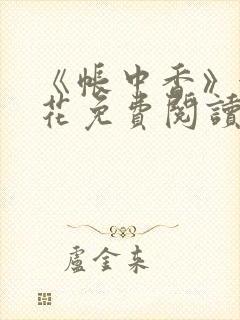 《帐中香》
花免費閱讀
盧金东